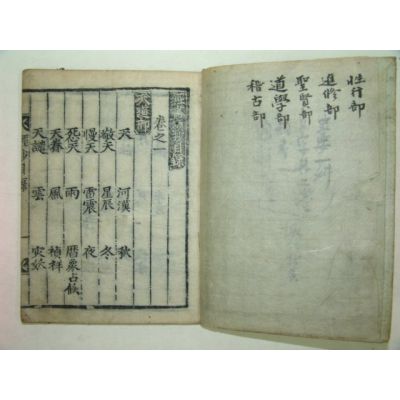 性行部
進修部
聖賢部
道學部
稽古部
卷之一
天道部
天 河漢 秋
敬天 星辰 冬
慢天 雷震 夜
怨天 雨 曆象占候
天眷 風 禎祥
天譴 雲 灾妖